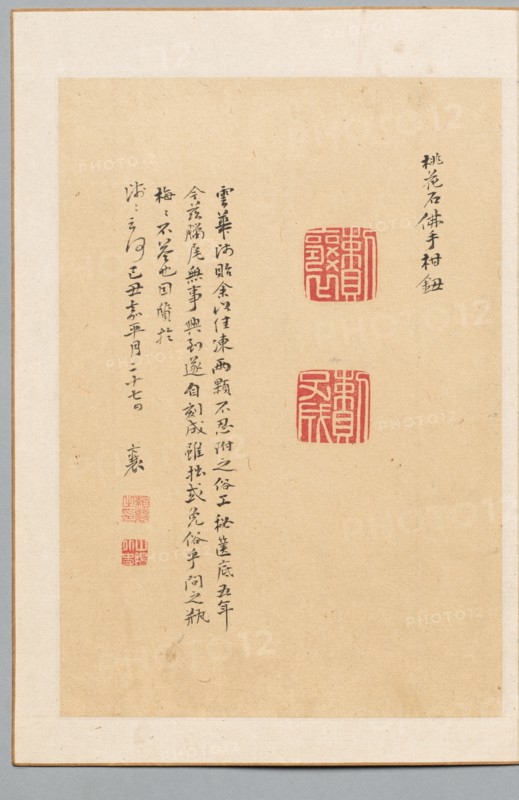 桃花石佛手柑鈕
雲華師貽余以佳凍両顆不忍附之俗工秘篋底五年
今茲臘尾無事興到遂自刻成雖拙或免俗乎問之瓶
梅〻不荅也因質於
師〻云何己丑嘉平月二十七日 襄
PHOTO12